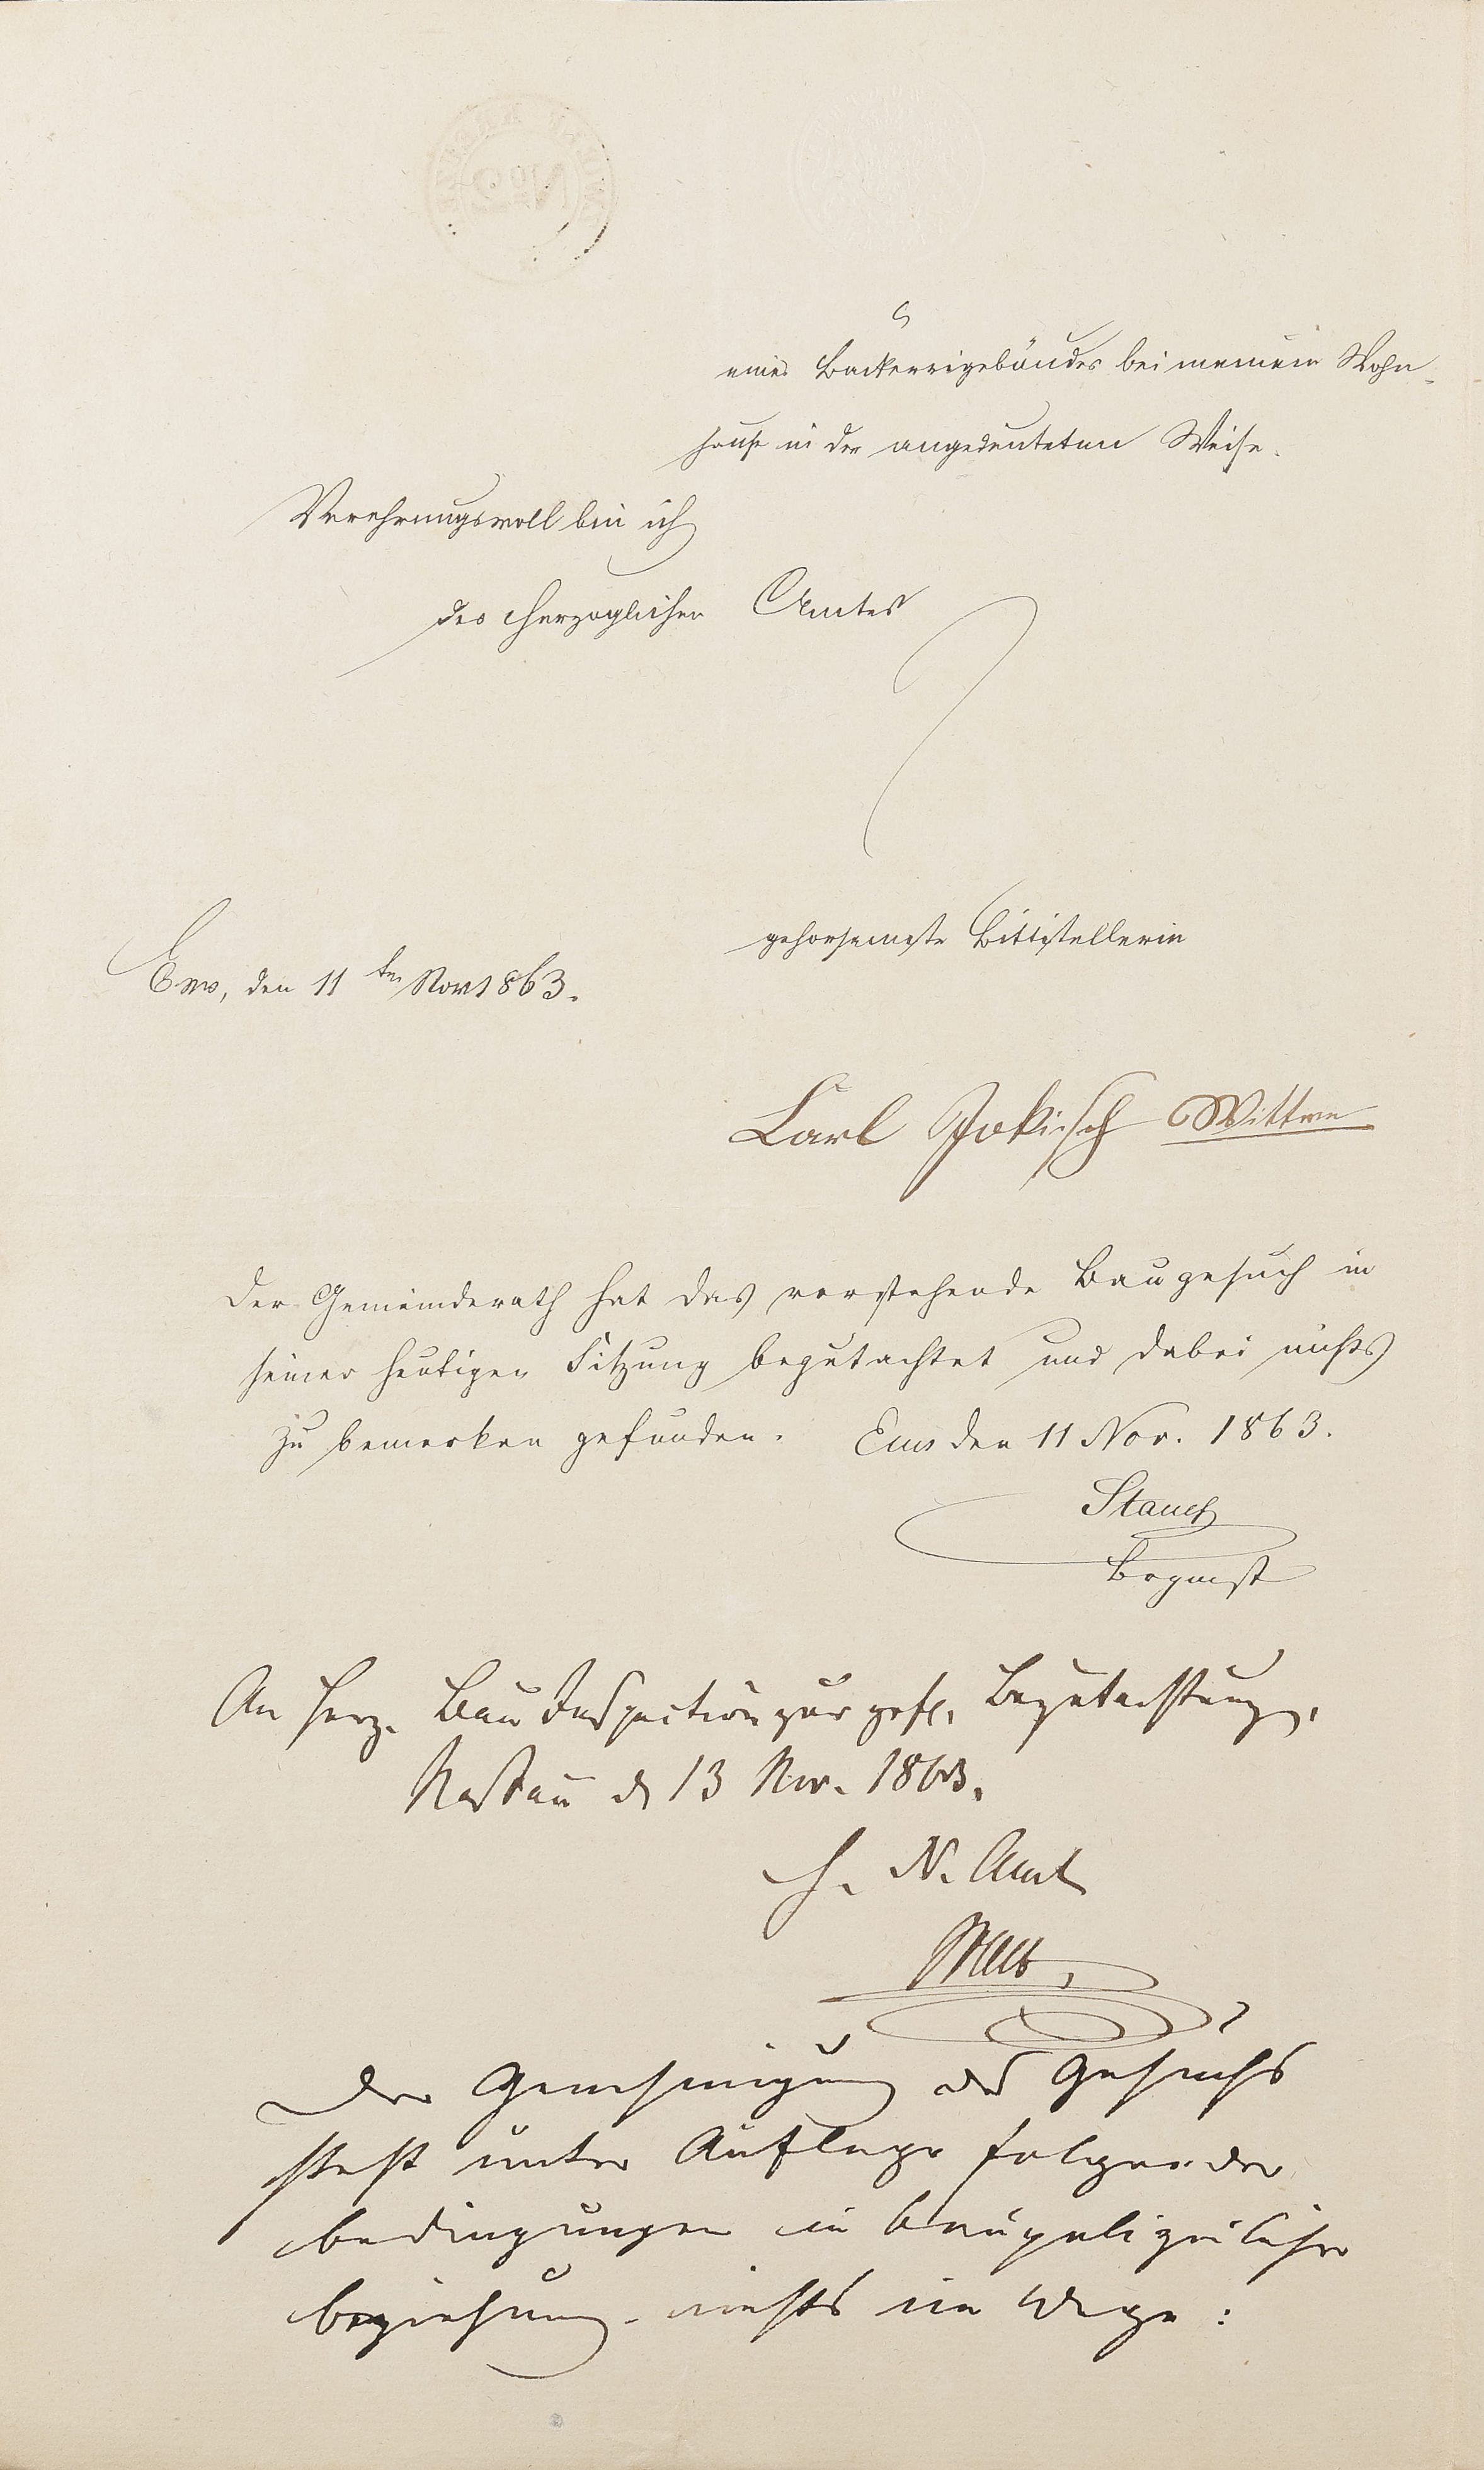 eines Backereigebäudes bei meinem Wohn-
hause in der angedeuteten Weise.
Verehrungsvoll bin ich
des Herzoglichen Amtes
gehorsamste Bittstellerin
Ems, den 11ten Nov 1863.
Carl Jokisch Wittwe
Der Gemeinderath hat das vorstehende Baugesuch in
seiner heutigen Sitzung begutachtet und dabei nichts
zu bemerken gefunden. Ems den 11 Nov. 1863.
Stauch
An Herz. Bau Inspection zur gefl. Begutachtung,
Nassau d 13 Nov. 1863.
H. N. Amt
Der Genehmigung des Gesuchs
steht unter Auflage folgender
Bedingungen in baupolizeilicher
Beziehung nichts im Wege: